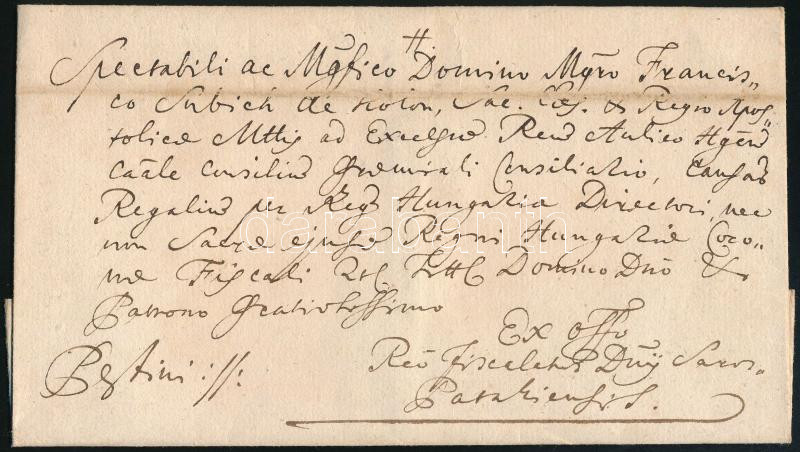 Spectabili ac Mgfico Domino Mgro Francis=
co Subich de
Sac. Caes. & Regio Apos=
tolicae Mttis ad Excelsum Rerum Aulico
Consilium Gremiali Consiliario, Causarum
Regalium per Reg. Hungariae Directori, nec
non Sacrae ejusd Regni Hungariae Coro=
nae Fiscali Domino Dno &
Patrono Gratiosissimo
Pestini ://:
Ex offo
Dnii Saros=
Patakiensis.
darabanth